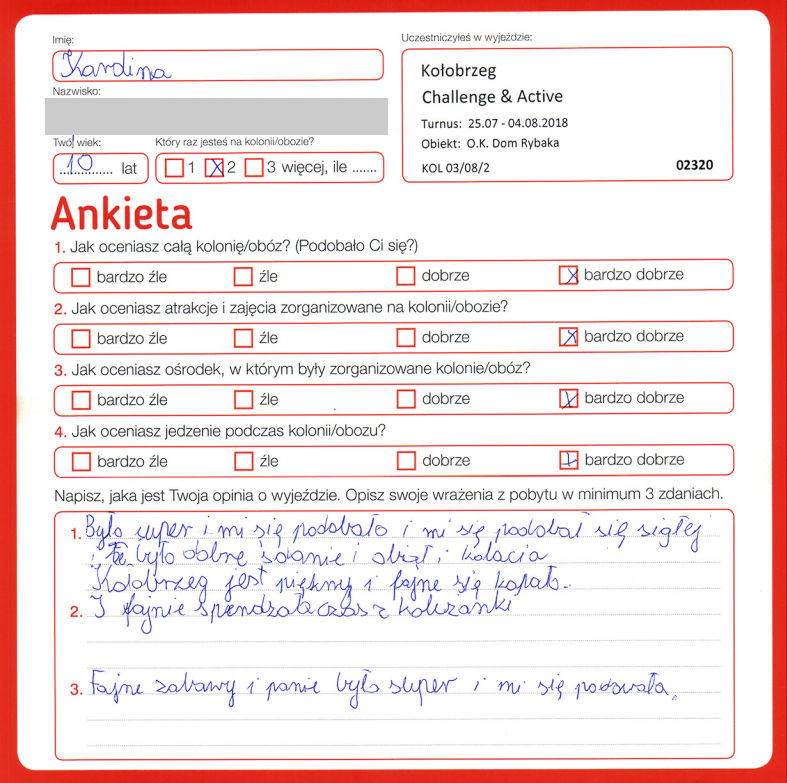 Imię:
Kardina
Nazwisko:
Twój wiek:
10 lat
Który raz jesteś na kolonii/obozie?
1 X 2 3 więcej, ile .......
Uczestniczyłeś w wyjeździe:
Kołobrzeg
Challenge & Active
Turnus: 25.07 - 04.08.2018
Obiekt: O.K. Dom Rybaka
KOL 03/08/2 02320
Ankieta
1. Jak oceniasz całą kolonię/obóz? (Podobało Ci się?)
bardzo źle źle dobrze X bardzo dobrze
2. Jak oceniasz atrakcje i zajęcia zorganizowane na kolonii/obozie?
bardzo źle źle dobrze X bardzo dobrze
3. Jak oceniasz ośrodek, w którym były zorganizowane kolonie/obóz?
bardzo źle źle dobrze X bardzo dobrze
4. Jak oceniasz jedzenie podczas kolonii/obozu?
bardzo źle źle dobrze X bardzo dobrze
Napisz, jaka jest Twoja opinia o wyjeździe. Opisz swoje wrażenia z pobytu w minimum 3 zdaniach.
1. Było super i mi się podobało i mi się podobał się
i było dobne i obiat i kolacia
Kołobrzeg jest piękny i fajne się kąpało.
2. I fajnie spendzała czas z koleżanki
3. Fajne zabawy i panie było super i mi się